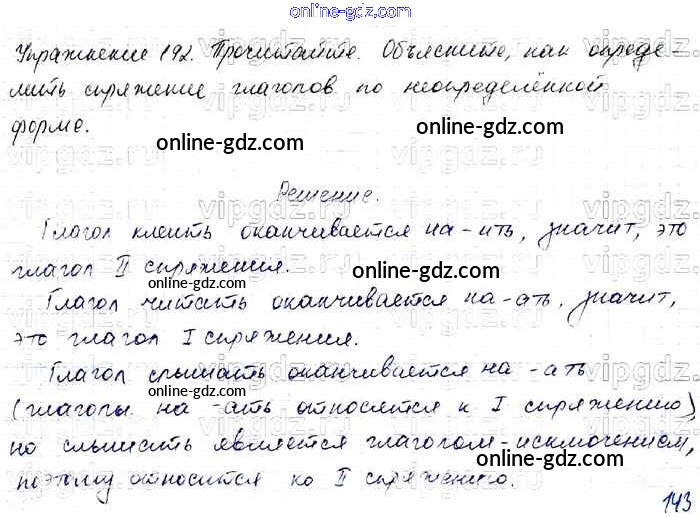 online-gdz.com
Упражнение 192. Прочитайте. Объясните, как опреде-
лить спряжение глаголов по неопределённой
форме.
online-gdz.com online-gdz.com
Решение.
Глагол клеить оканчивается на -ить, значит, это
глагол II спряжения.
online-gdz.com
Глагол читать оканчивается на -ать, значит,
это глагол I спряжения.
Глагол слышать оканчивается на -ать
online-gdz.com
(глаголы на -ать относятся к I спряжению),
но слышать является глаголом-исключением,
поэтому относится ко II спряжению.
online-gdz.com
143